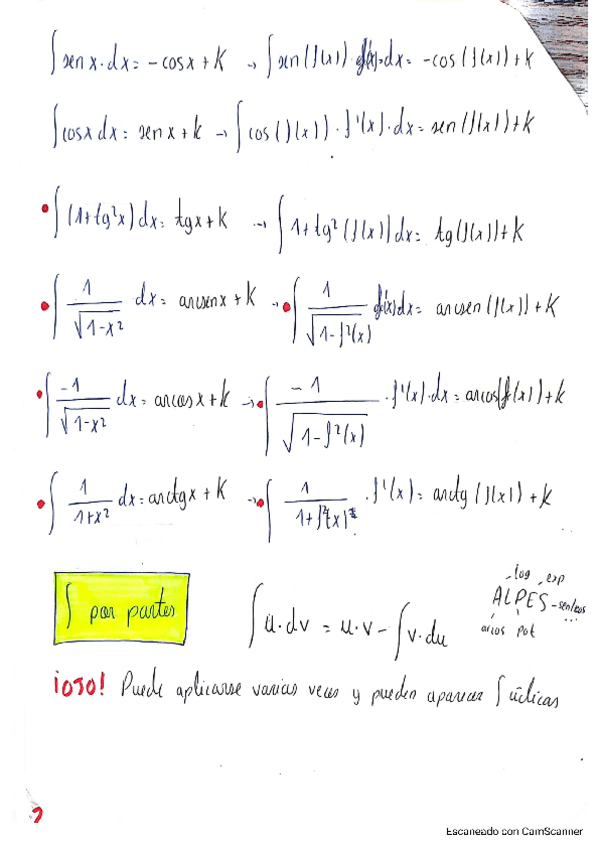 ∫ sen x · dx = -cos x + K → ∫ sen (f(x)) · f'(x) · dx = -cos (f(x)) + K
∫ cos x dx = sen x + k → ∫ cos (f(x)) · f'(x) · dx = sen (f(x)) + K
• ∫ (1 + tg²x) dx = tg x + K → ∫ 1 + tg² (f(x)) dx = tg (f(x)) + K
• ∫ 1/√(1-x²) dx = arcsen x + K → • ∫ 1/√(1-f²(x)) f'(x) dx = arcsen (f(x)) + K
• ∫ -1/√(1-x²) dx = arcos x + k → • ∫ -1/√(1-f²(x)) · f'(x) · dx = arcos (f(x)) + k
• ∫ 1/(1+x²) dx = arctg x + K → • ∫ 1/(1+f²(x)) · f'(x) = arctg (f(x)) + K
∫ por partes
∫ u · dv = u · v - ∫ v · du
log exp
ALPES - senos
...
arcos pol
¡OJO! Puede aplicarse varias veces y pueden aparecer ∫ cíclicas
Escaneado con CamScanner